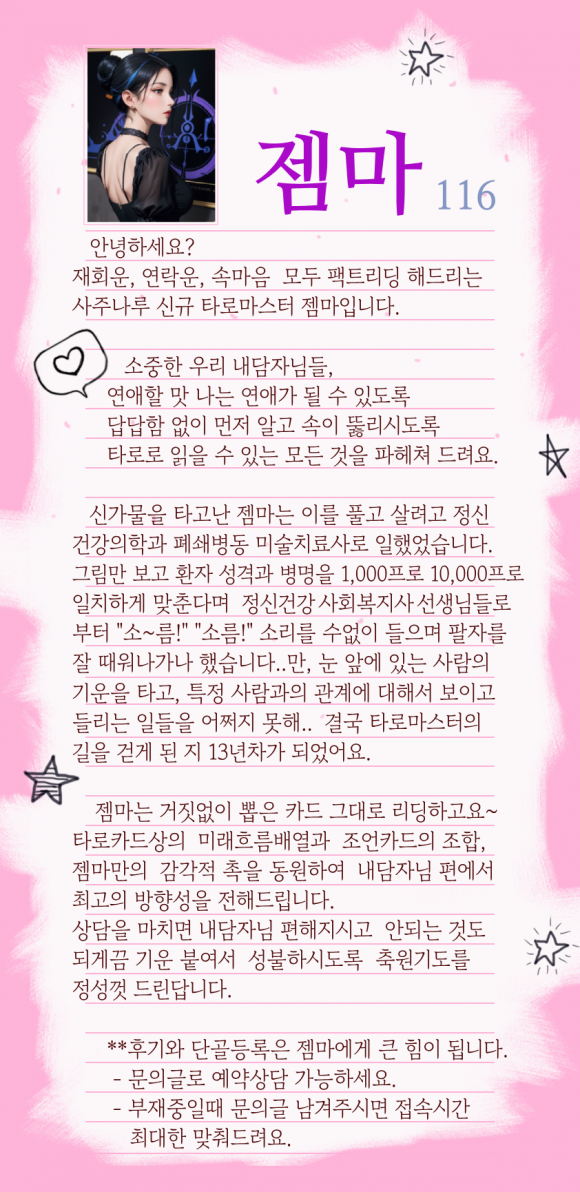 젬마 116
안녕하세요?
재회운, 연락운, 속마음 모두 팩트리딩 해드리는
사주나루 신규 타로마스터 젬마입니다.
소중한 우리 내담자님들,
연애할 맛 나는 연애가 될 수 있도록
답답함 없이 먼저 알고 속이 뚫리시도록
타로로 읽을 수 있는 모든 것을 파헤쳐 드려요.
신가물을 타고난 젬마는 이를 풀고 살려고 정신
건강의학과 폐쇄병동 미술치료사로 일했었습니다.
그림만 보고 환자 성격과 병명을 1,000프로 10,000프로
일치하게 맞춘다며 정신건강사회복지사선생님들로
부터 "소~름!" "소름!" 소리를 수없이 들으며 팔자를
잘 때워나가나 했습니다..만, 눈 앞에 있는 사람의
기운을 타고, 특정 사람과의 관계에 대해서 보이고
들리는 일들을 어쩌지 못해.. 결국 타로마스터의
길을 걷게 된 지 13년차가 되었어요.
젬마는 거짓없이 뽑은 카드 그대로 리딩하고요~
타로카드상의 미래흐름배열과 조언카드의 조합,
젬마만의 감각적 촉을 동원하여 내담자님 편에서
최고의 방향성을 전해드립니다.
상담을 마치면 내담자님 편해지시고 안되는 것도
되게끔 기운 붙여서 성불하시도록 축원기도를
정성껏 드린답니다.
**후기와 단골등록은 젬마에게 큰 힘이 됩니다.
- 문의글로 예약상담 가능하세요.
- 부재중일때 문의글 남겨주시면 접속시간
최대한 맞춰드려요.